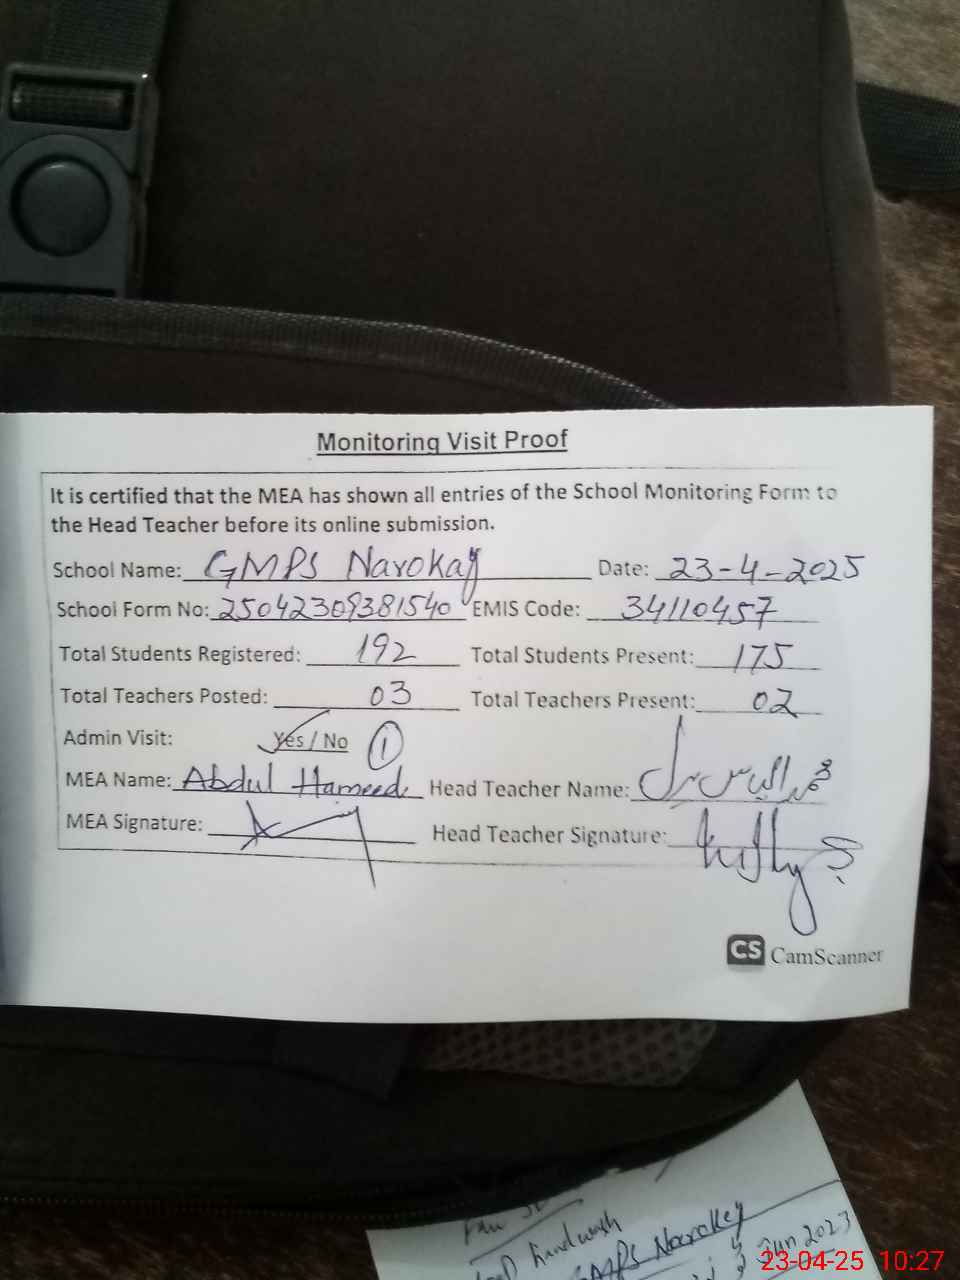 Monitoring Visit Proof
It is certified that the MEA has shown all entries of the School Monitoring Form to
the Head Teacher before its online submission.
School Name: GMPS Narokay Date: 23-4-2025
School Form No: 25042309381540 EMIS Code: 34110457
Total Students Registered: 192 Total Students Present: 175
Total Teachers Posted: 03 Total Teachers Present: 02
Admin Visit: Yes / No 1
MEA Name: Abdul Hameed Head Teacher Name: محمد الیاس
MEA Signature: Head Teacher Signature:
CS CamScanner
handwash
GMPS Narokey
Jun 2023
23-04-25 10:27